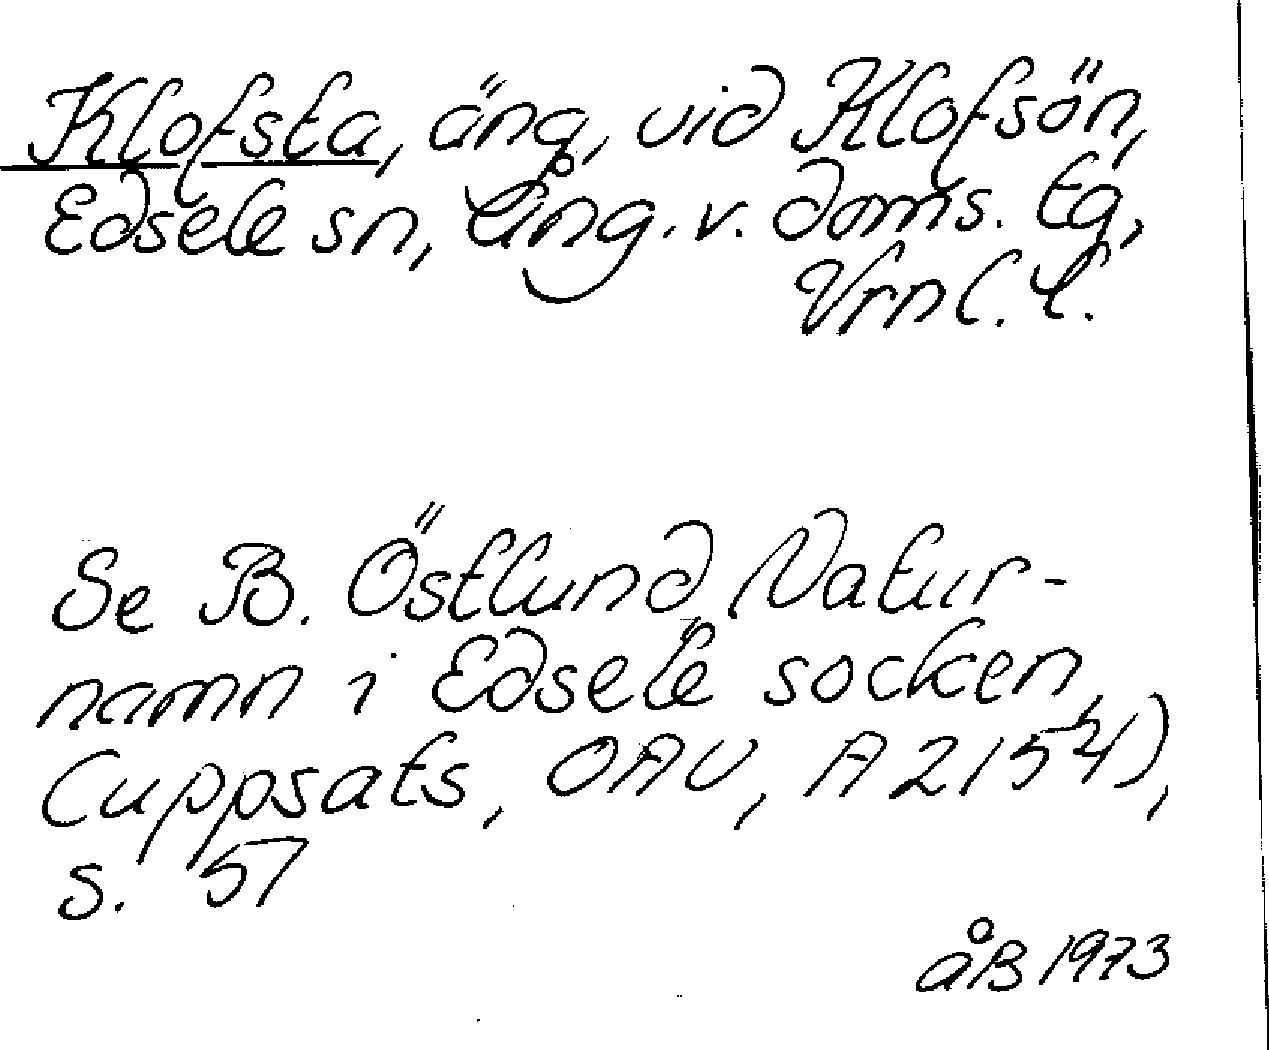 Klofsta, äng, vid Klofsön,
Edsele sn, Ång. v. doms. tg,
Vrnl. l.
Se B. Östlund, Natur-
namn i Edsele socken
(uppsats, OAU, A 2154),
s. 57
åB 1973